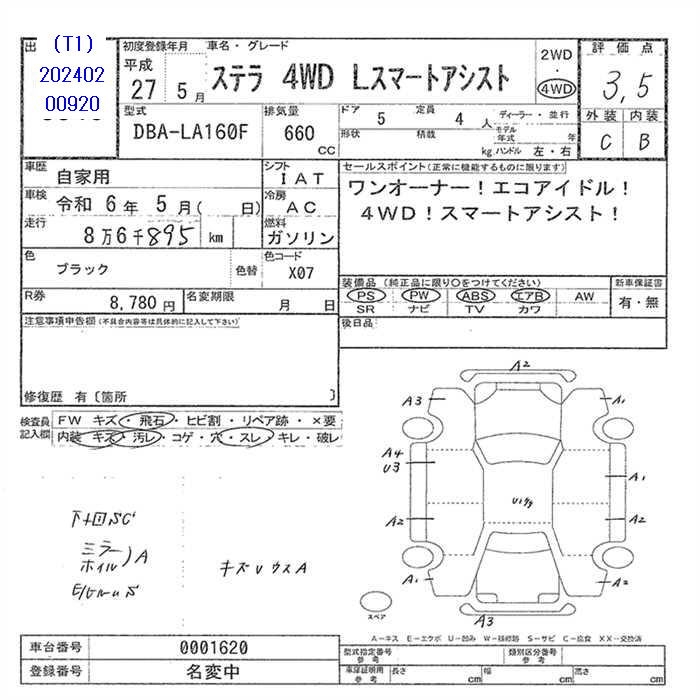 出 (T1)
202402
00920
初度登録年月 車名・グレード
平成
27 5月 ステラ 4WD Lスマートアシスト
2WD
・
4WD
評価点
3,5
外装 内装
C B
型式
DBA-LA160F
排気量
660 CC
ドア 5 定員 4 人
形状 積載 kg
ディーラー・並行
モデル年式 年
ハンドル 左・右
車歴 自家用
シフト IAT
車検 令和 6年 5月( 日)
冷房 AC
走行 8万6千895 km
燃料 ガソリン
色 ブラック 色替
色コード X07
R券 8,780円 名変期限 月 日
セールスポイント(正常に機能するものに限ります)
ワンオーナー!エコアイドル!
4WD!スマートアシスト!
装備品(純正品に限り○をつけてください) 新車保証書
PS PW ABS エアB AW 有・無
SR ナビ TV カワ
後日品
注意事項申告欄(不具合内容等は具体的に記入して下さい)
修復歴 有〔箇所 〕
検査員記入欄
FW キズ・飛石・ヒビ割・リペア跡・×要
内装 キズ・汚レ・コゲ・穴・スレ・キレ・破レ
下廻SC
ミラー
ホイル)A
キズUウスA
A2
A3 A1
A4
U3
A1
A2 A2
A1 A2
A3
スペア
A−キズ E−エクボ U−凹み W−補修跡 S−サビ C−腐食 XX−交換済
車台番号 0001620
登録番号 名変中
型式指定番号 参考 類別区分番号 参考
車庫証明用 参考 長さ cm 幅 cm 高さ cm